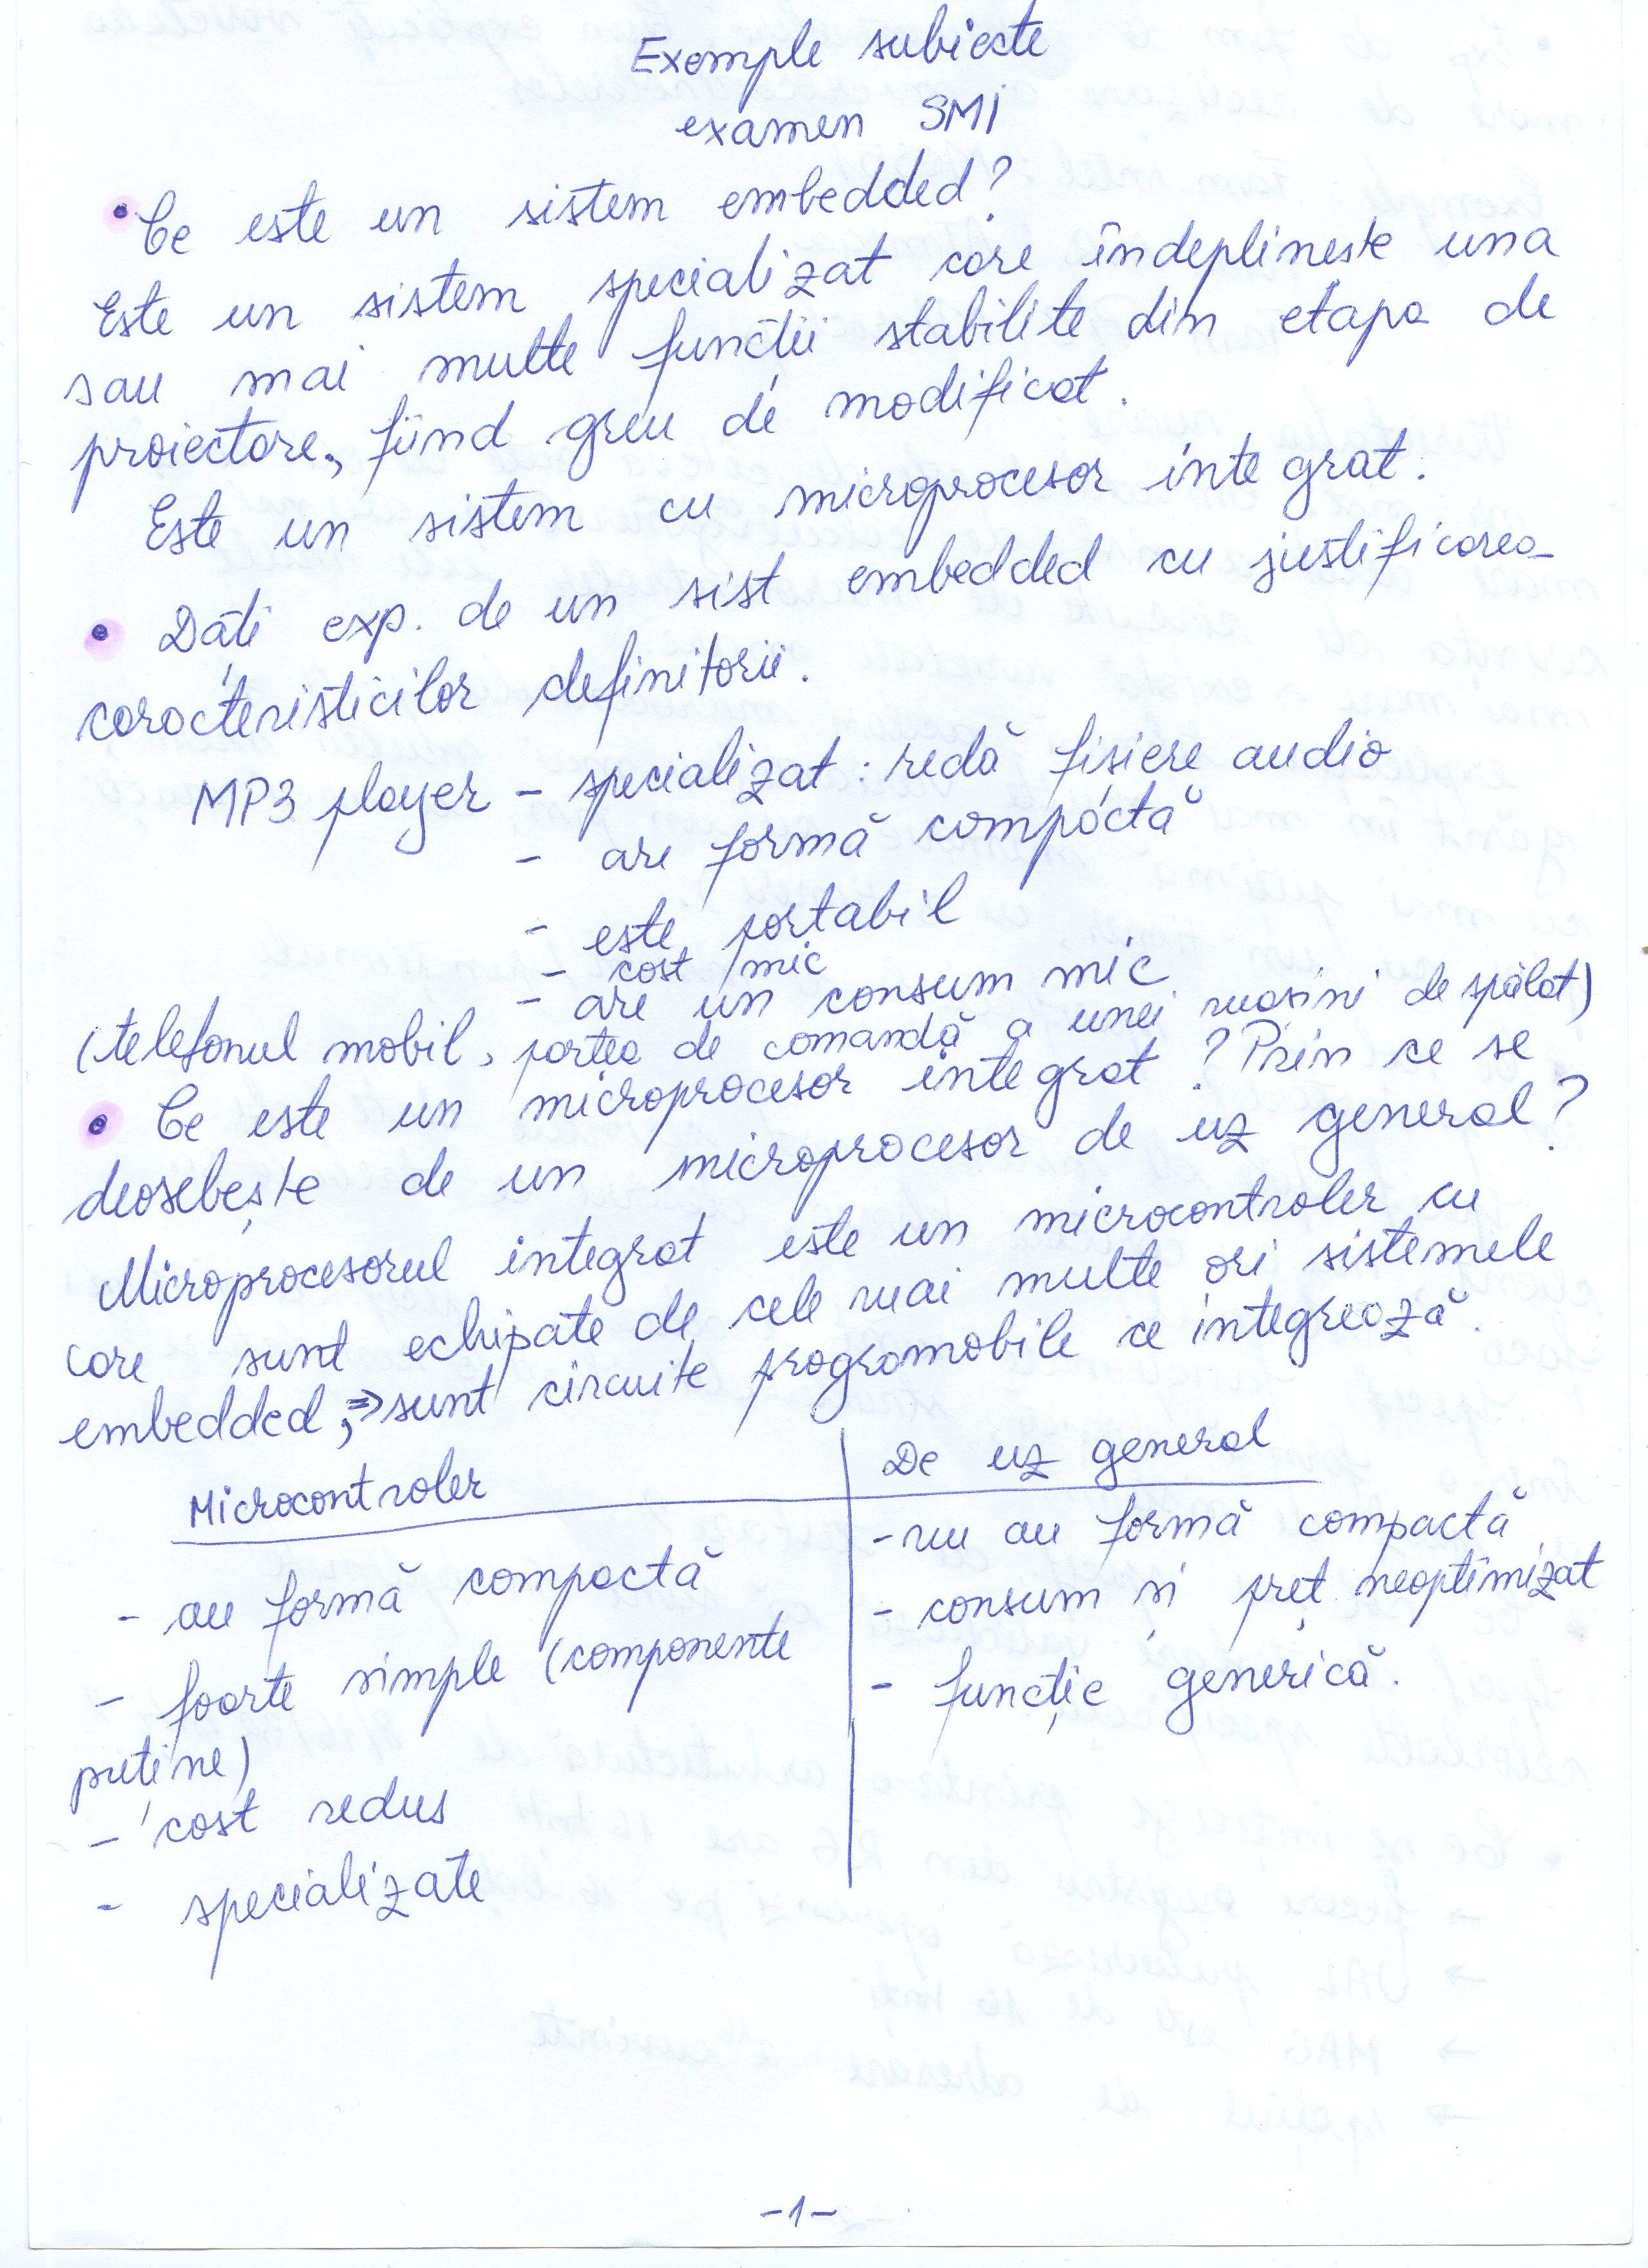 Exemple subiecte
examen SMI
• Ce este un sistem embedded?
Este un sistem specializat care îndeplineste una
sau mai multe funcții stabilite din etapa de
proiectare, fiind greu de modificat.
Este un sistem cu microprocesor integrat.
• Dați exp. de un sist embedded cu justificarea
caracteristicilor definitorii.
MP3 player - specializat: redă fișiere audio
- are formă compactă
- este portabil
- cost mic
- are un consum mic
(telefonul mobil, partea de comandă a unei mașini de spălat)
• Ce este un microprocesor integrat? Prin ce se
deosebește de un microprocesor de uz general?
Microprocesorul integrat este un microcontroler cu
care sunt echipate de cele mai multe ori sistemele
embedded, => sunt circuite programabile ce integrează.
Microcontroler | De uz general
- au formă compactă
- foarte simple (componente
puține)
- cost redus
- specializate
- nu au formă compactă
- consum și preț neoptimizat
- funcție generică.
-1-